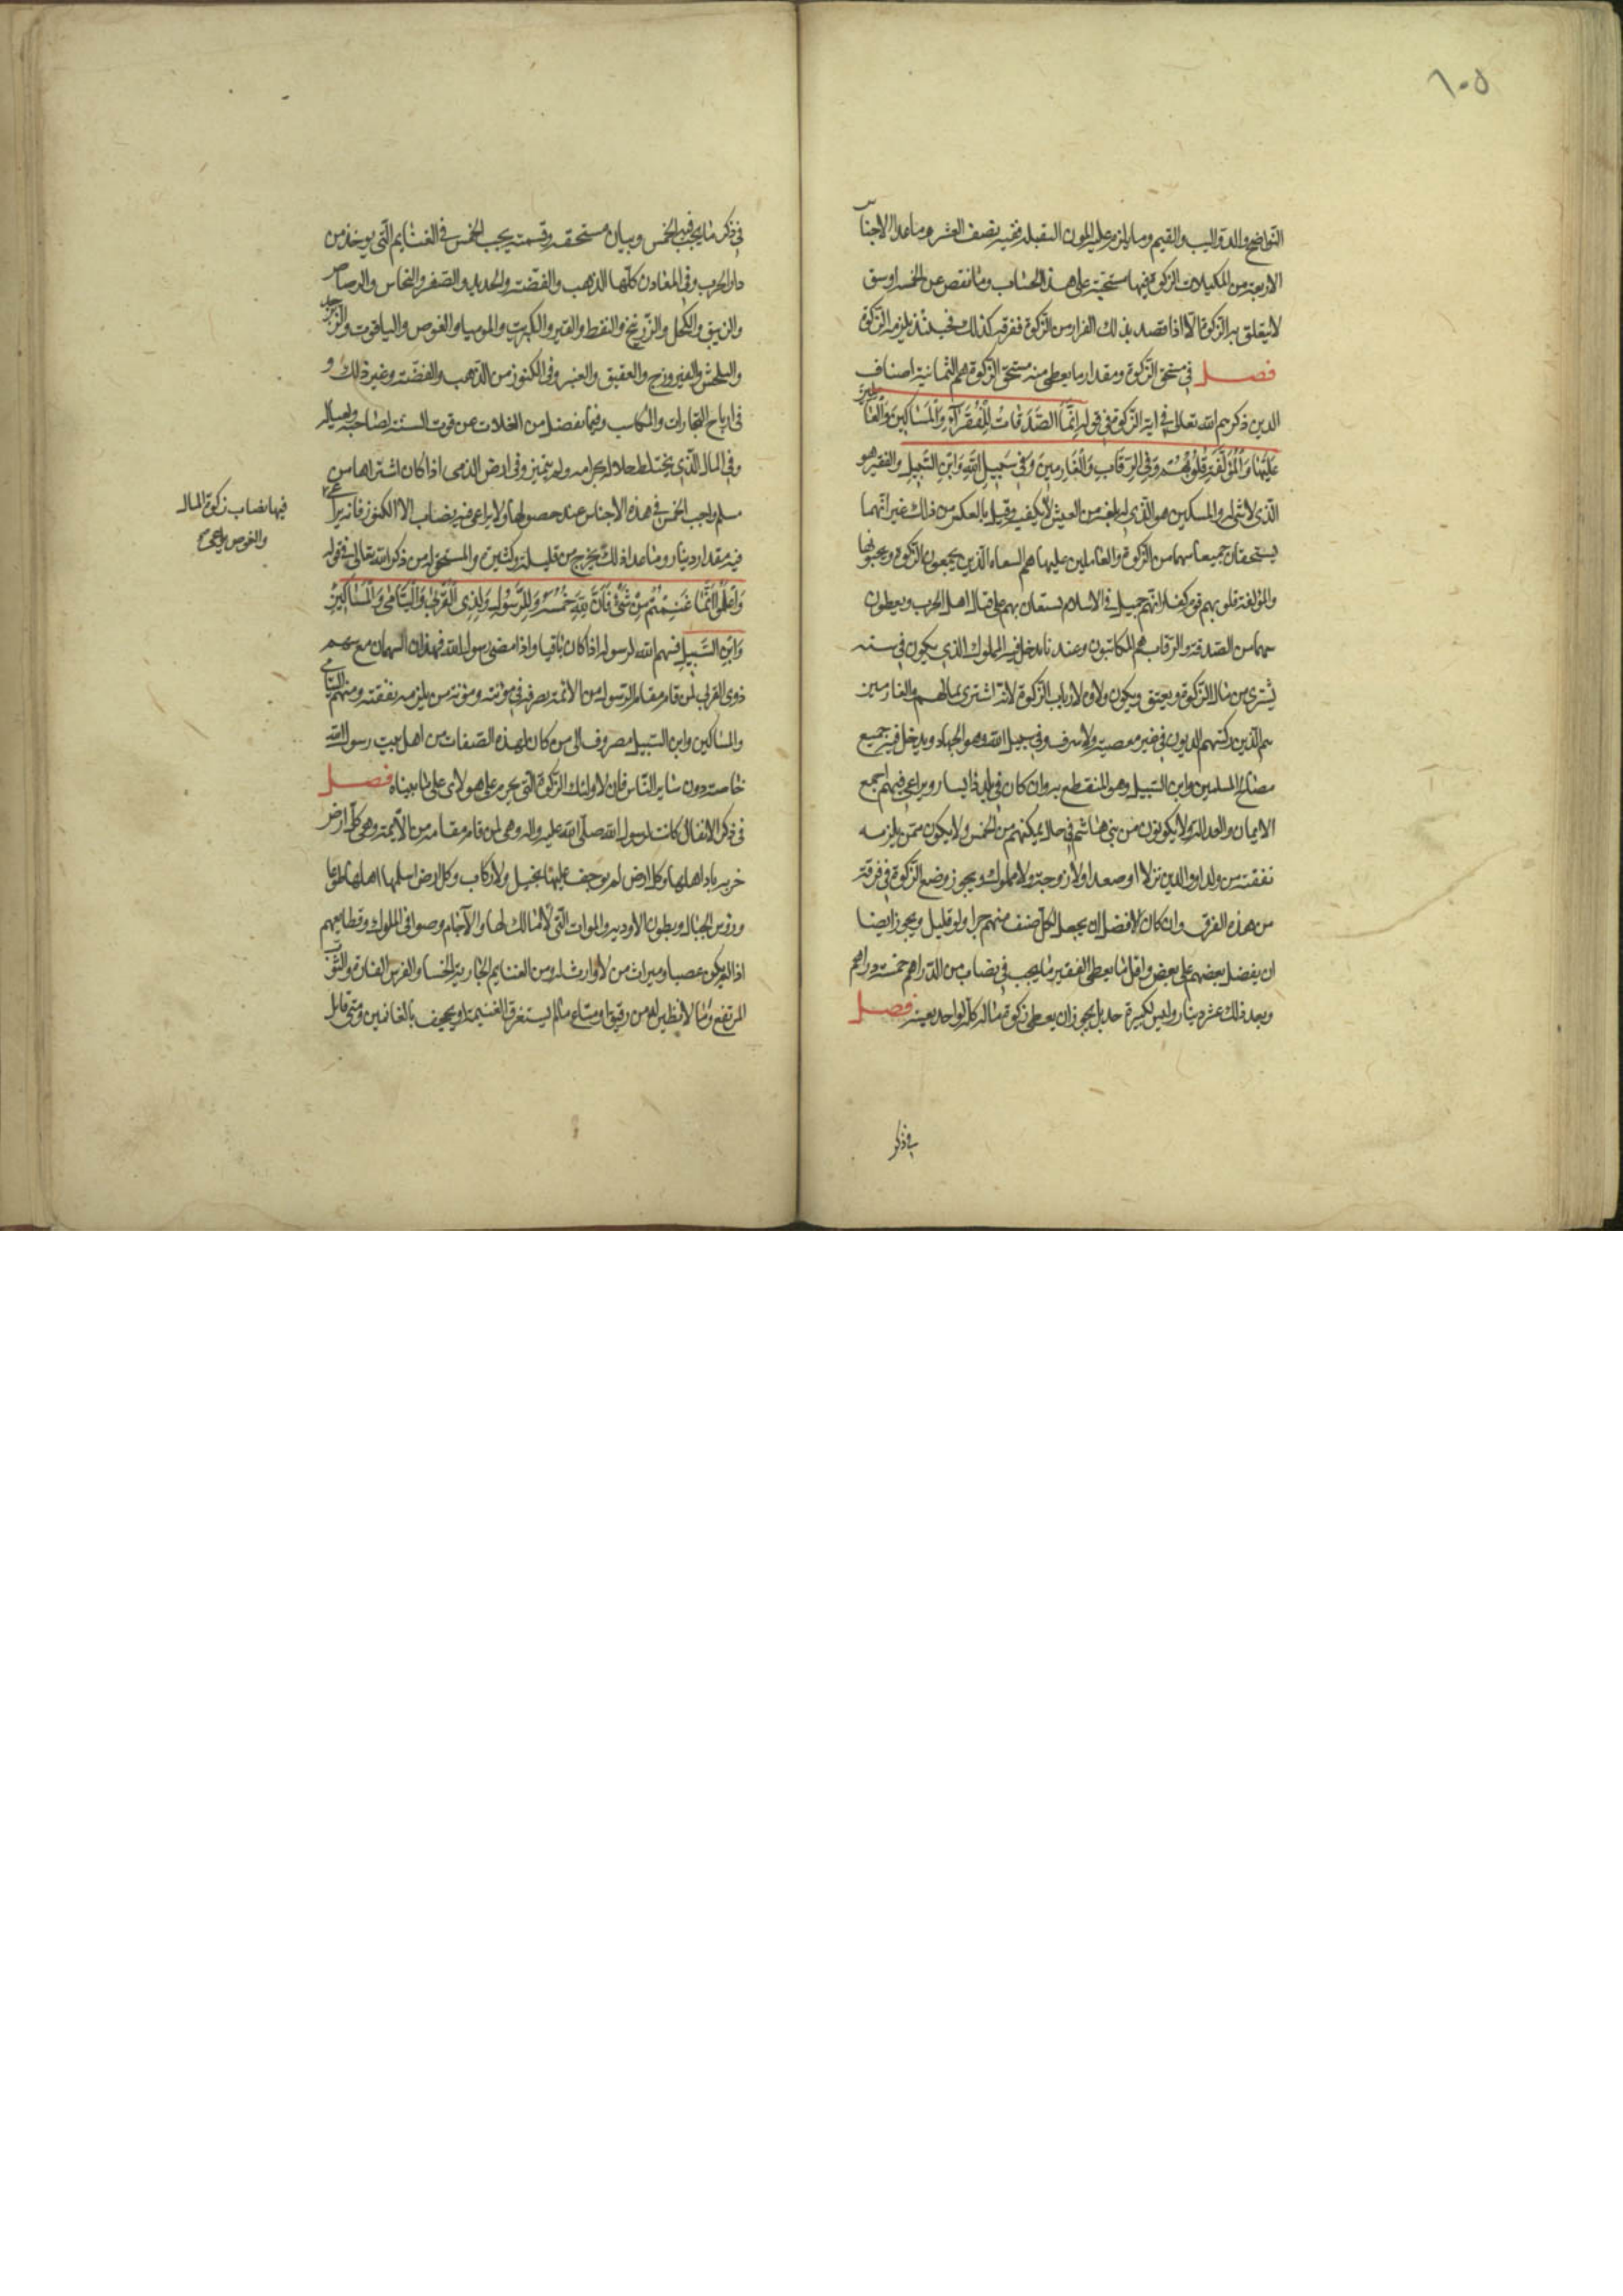 ٦٠٥
النواضح والدوالیب والقیم وما یلزم علیه المون الثقیله ففیه نصف العشر وما عدا الاجناس
الاربعة من المکیلات الزکوة فیها مستحبة علی هذا الحساب وما نقص عن الخمسة اوسق
لا یتعلق به الزکوة الا اذا قصد بذلک الفرار من الزکوة ففرقه کذلک فحینئذ یلزمه الزکوة
فصل فی مستحق الزکوة ومقدار ما یعطی منه مستحق الزکوة هم الثمانیة اصناف
الذین ذکرهم الله تعالی فی ایة الزکوة فی قوله اِنَّمَا الصَّدَقَاتُ لِلْفُقَرَآءِ وَالْمَسَاکِینَ وَالْعَامِلِینَ
عَلَیْهَا وَالْمُؤَلَّفَةِ قُلُوبُهُمْ وَفِی الرِّقَابِ وَالْغَارِمِینَ وَفِی سَبِیلِ اللهِ وَابْنِ السَّبِیلِ والفقیر هو
الذی لا شئ له والمسکین هو الذی له بلغة من العیش لا یکفیه وقیل بالعکس من ذلک غیر انهما
یستحقان جمیعا سهما من الزکوة والعاملین علیها هم السعاه الذین یجمعون الزکوة ویجبونها
والمؤلفة قلوبهم قوم کفار لهم جمیل فی الاسلام یستعان بهم علی قتال اهل الحرب ویعطون
سهما من الصدقة والرقاب هم المکاتبون وعندنا یدخل فیه المملوک الذی یکون فی شدة
یشتری من مال الزکوة ویعتق ویکون ولاوه لارباب الزکوة لانه اشتری بمالهم والغارمین
هم الذین رکبتهم الدیون فی غیر معصیة ولا سرف وفی سبیل الله وهو الجهاد ویدخل فیه جمیع
مصالح المسلمین وابن السبیل وهو المنقطع به وان کان فی بلده ذا یسار ویراعی فیهم اجمع
الایمان والعدالة ولا یکونون من بنی هاشم فی حال یمکنهم من الخمس ولا یکون ممن یلزمه
نفقته من ولد او والدین نزلا او صعدا ولا زوجة ولا مملوک ویجوز وضع الزکوة فی فرقة
من هذه الفرق وان کان الافضل ان یجعل لکل صنف منهم جزا ولو قلیل ویجوز ایضا
ان یفضل بعضهم علی بعض واقل ما یعطی الفقیر ما یجب فی نصاب من الدراهم خمسة دراهم
وبعد ذلک عشر دینار ولیس لکثیره حد بل یجوز ان یعطی زکوة ماله کله لواحد بعینه فصل
فی ذکر
فی ذکر ما یجب فیه الخمس وبیان مستحقه وقسمته یجب الخمس فی الغنایم التی یوخذ من
دار الحرب وفی المعادن کلها الذهب والفضة والحدید والصفر والنحاس والرصاص
والزیبق والکحل والزرنیخ والنفط والقیر والکبریت والمومیا والغوص والیاقوت والزبرجد
والبلخش والفیروزج والعقیق والعنبر وفی الکنوز من الذهب والفضة وغیر ذلک و
فی ارباح التجارات والمکاسب وفیما یفضل من الغلات عن قوت السنة لصاحبه ولعیاله
وفی المال الذی یختلط حلاله بحرامه ولم یتمیز وفی ارض الذمی اذا کان اشتراها من
مسلم واجب الخمس فی هذه الاجناس عند حصولها ولا یراعی فیه نصاب الا الکنوز فانه یراعی
فیها نصاب زکوة المال
والغوص یراعی
فیه مقدار دینار وما عدا ذلک یخرج من قلیله وکثیره والمستحق له من ذکر الله تعالی فی قوله
وَاعْلَمُوا اَنَّمَا غَنِمْتُمْ مِنْ شَیْءٍ فَاَنَّ لِلّهِ خُمُسَهُ وَلِلرَّسُولِ وَلِذِی الْقُرْبَی وَالْیَتَامَی وَالْمَسَاکِینِ
وَابْنِ السَّبِیلِ فسهم الله لرسوله اذا کان باقیا واذا مضی رسول الله فهذان السهمان مع سهم
ذوی القربی لمن قام مقام الرسول من الائمة یصرفه فی مونته ومونة من یلزمه نفقته وسهم الیتامی
والمساکین وابن السبیل مصروف الی من کان بهذه الصفات من اهل بیت رسول الله
خاصة دون سایر الناس فان لاولئک الزکوة التی یحرم علی هولای علی ما بیناه فصل
فی ذکر الانفال کانت لرسول الله صلی الله علیه واله وهی لمن قام مقامه من الائمة وهی کل ارض
خربه باد اهلها وکل ارض لم یوجف علیها بخیل ولا رکاب وکل ارض اسلمها اهلها طوعا
وروس الجبال وبطون الاودیه والموات التی لا مالک لها والآجام وصوافی الملوک وقطایعهم
اذا لم یکن غصبا ومیراث من لا وارث له ومن الغنایم الجاریة الحسنا والفرس الفاره والثوب
المرتفع وما لا نظیر له من رقیق او متاع ما لم یستغرق الغنیمة او یجحف بالغانمین ومتی قاتل